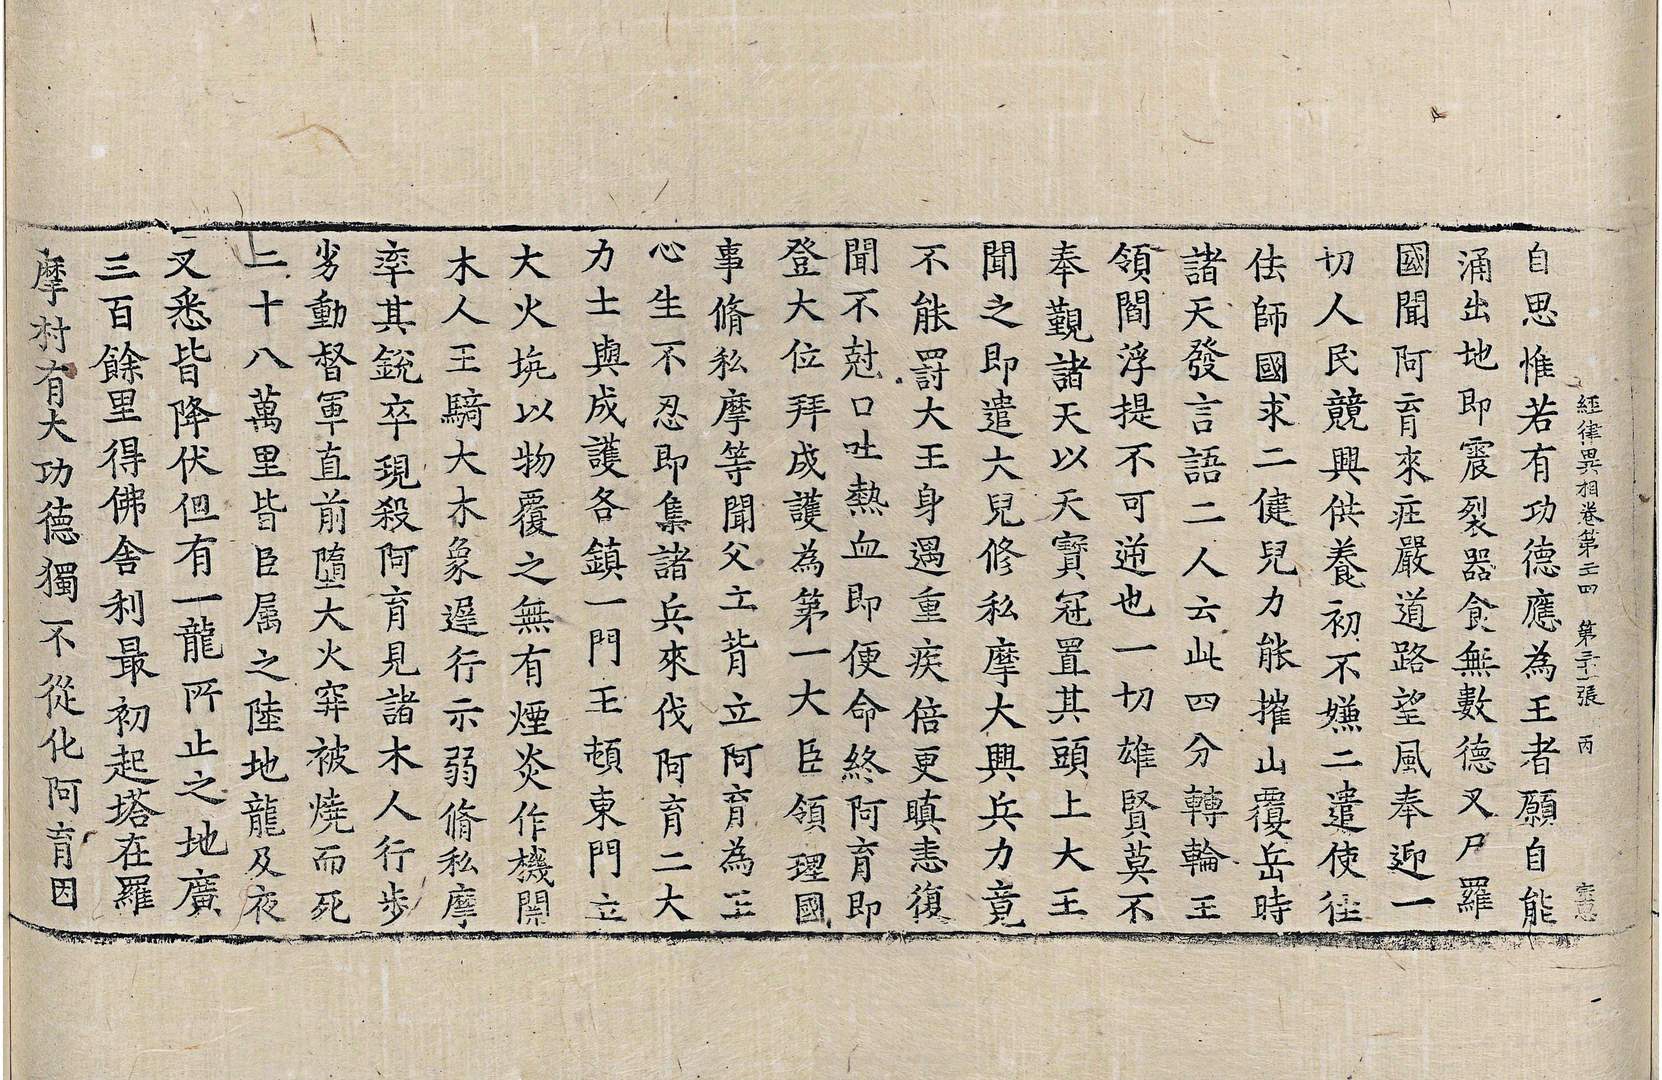 經律異相卷第二十四 第三十一張 丙
自思惟若有功德應為王者願自能
涌出地即震裂器食無數德叉尸羅
國聞阿育來庄嚴道路望風奉迎一
切人民競興供養初不嫌二遣使往
佉師國求二健兒力能摧山覆岳時
諸天發言語二人云此四分轉輪王
領閻浮提不可逆也一切雄賢莫不
奉觀諸天以天寶冠置其頭上大王
聞之即遣大兒修私摩大興兵力竟
不能罸大王身遇重疾倍更瞋恚復
聞不尅口吐熱血即便命終阿育即
登大位拜成護為第一大臣領理國
事脩私摩等聞父立背立阿育為王
心生不忍即集諸兵來伐阿育二大
力士與成護各鎮一門王頓東門立
大火坑以物覆之無有煙炎作機關
木人王騎大木象遅行示弱脩私摩
率其銳卒現殺阿育見諸木人行步
劣動督軍直前墮大火穽被燒而死
二十八萬里皆臣属之陸地龍及夜
叉悉皆降伏但有一龍所止之地廣
三百餘里得佛舍利最初起塔在羅
摩村有大功德獨不從化阿育因